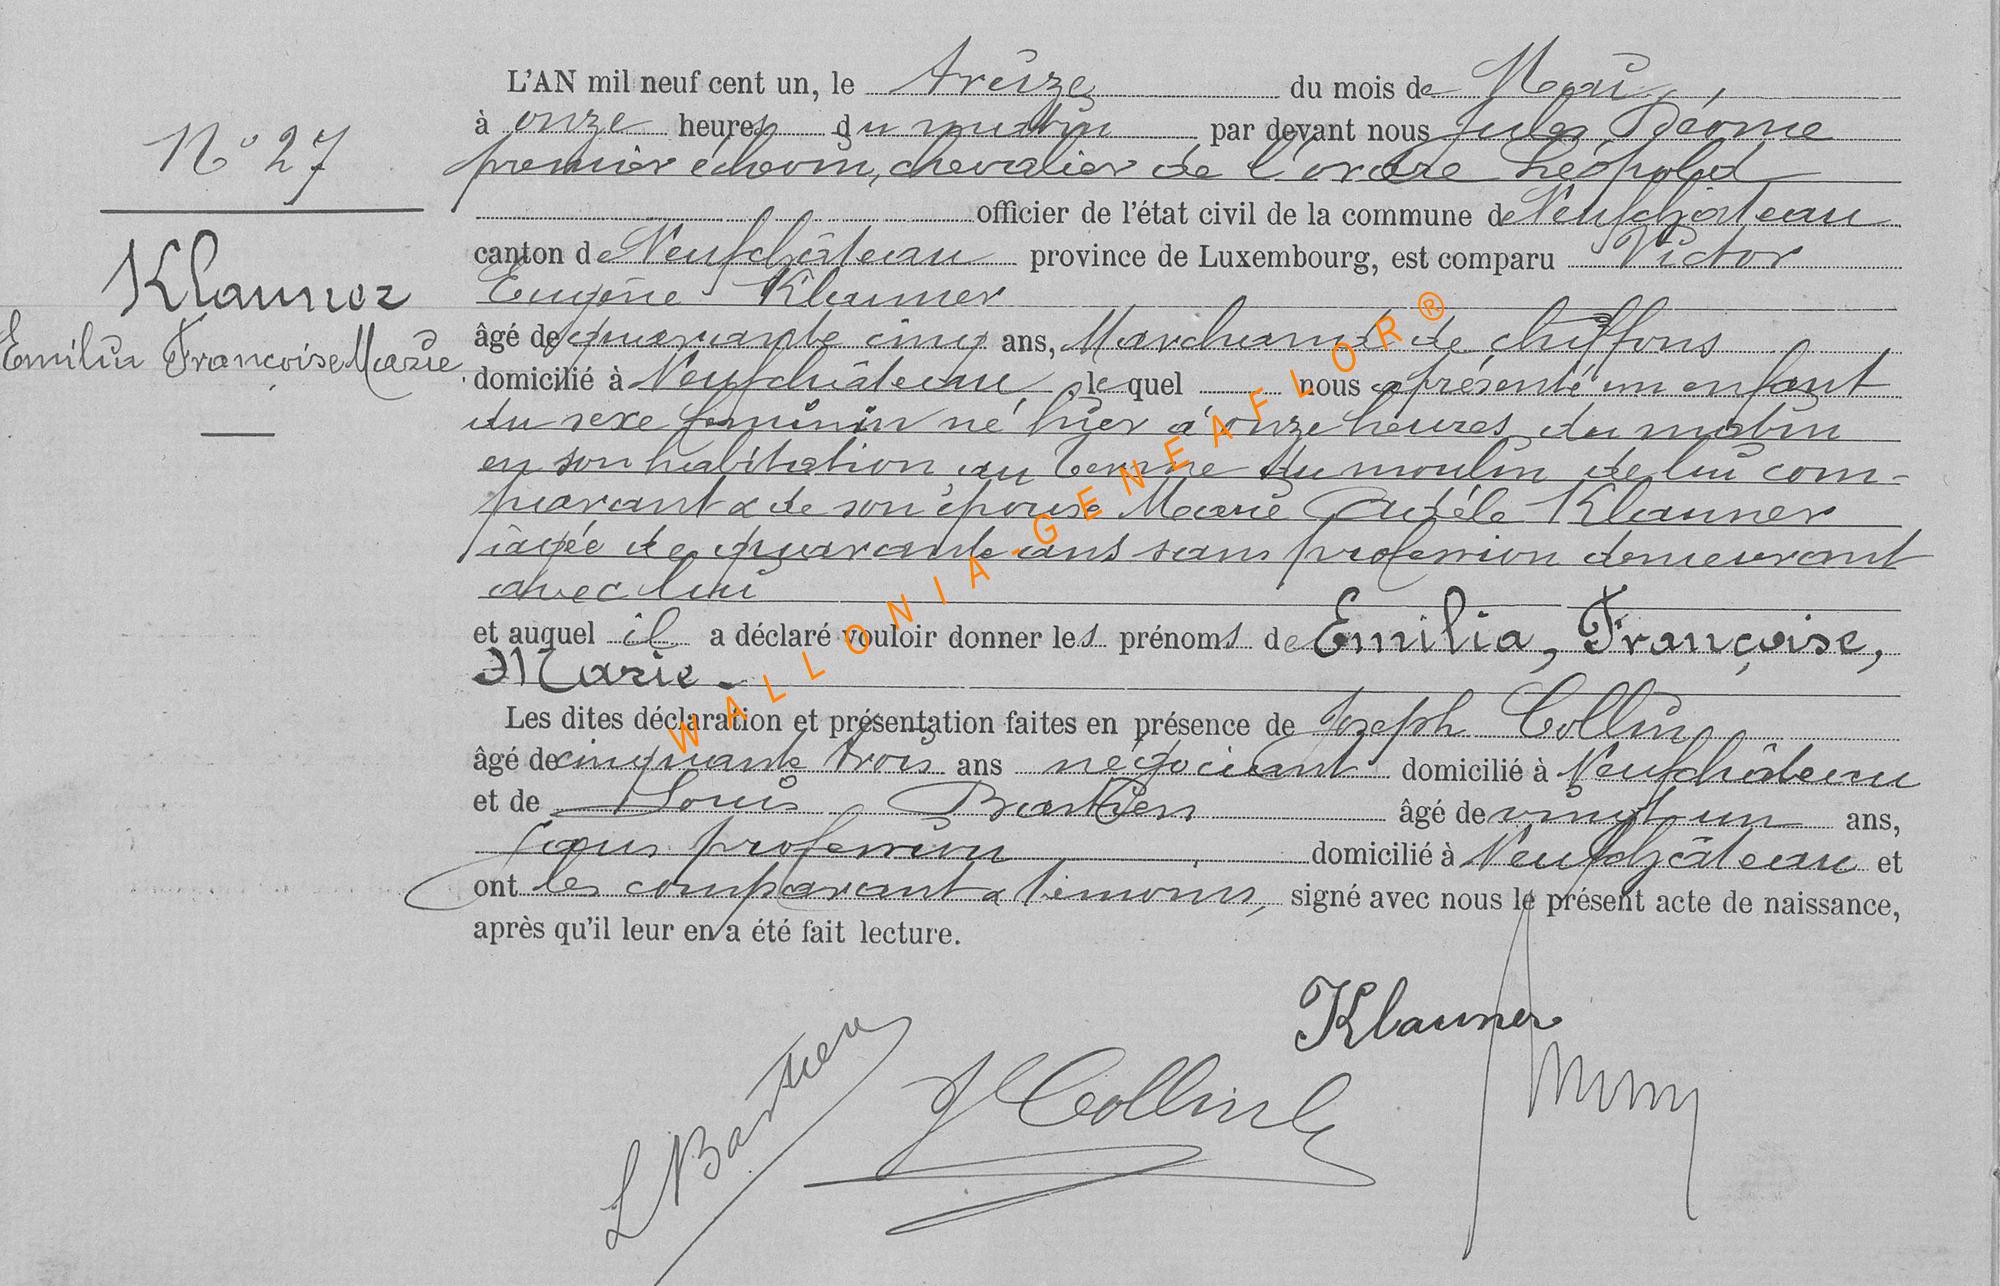 L'AN mil neuf cent un, le treize du mois de Mai,
à onze heures du matin par devant nous Jules
premier échevin, chevalier de l'ordre Léopold
officier de l'état civil de la commune de Neufchâteau
canton de Neufchâteau province de Luxembourg, est comparu Victor
Eugène Klauner
âgé de quarante cinq ans, Marchand de chiffons
domicilié à Neufchâteau, le quel nous a présenté un enfant
du sexe féminin né hier à onze heures du matin
en son habitation au terme du moulin de lui com-
parant & de son épouse Marie Adèle Klauner
âgée de quarante ans sans profession demeurant
avec lui
et auquel il a déclaré vouloir donner les prénoms de Emilia, Françoise,
Marie.-
Les dites déclaration et présentation faites en présence de Joseph Collin
âgé de cinquante trois ans négociant domicilié à Neufchâteau
et de Louis Bastien âgé de vingt un ans,
sans profession domicilié à Neufchâteau et
ont les comparant & témoins, signé avec nous le présent acte de naissance,
après qu'il leur en a été fait lecture.
N° 27
Klauner
Emilia Françoise Marie
Klauner
L Bastien
J Collin
WALLONIA-GENEAFLOR®